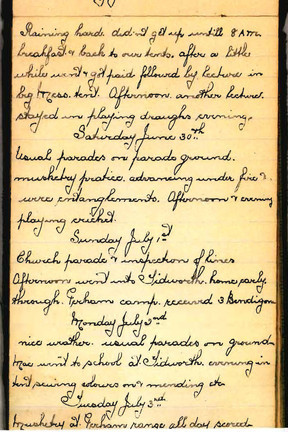 Raining hard. didn't get up untill 8 AM.
breakfast & back to our tents. after a little
while went & got paid followed by lecture in
big Mess. tent. Afternoon. another lecture.
stayed in playing draughs evening.
Saturday June 30th
Usual parades on parade ground.
musketry pratice. advancing under fire &
wire entanglements. Afternoon & evening
playing cricket.
Sunday July 1st
Church parade & inspection of lines
Afternoon went into Tidworth. home early.
through. Perham camp. received 3 Bendigon
Monday July 2nd
nice weather. usual parades on ground
Mac went to school at Tidworth. evening in
tent sewing colours on & mending etc
Tuesday July 3rd
Musketry at Perham range all day scored